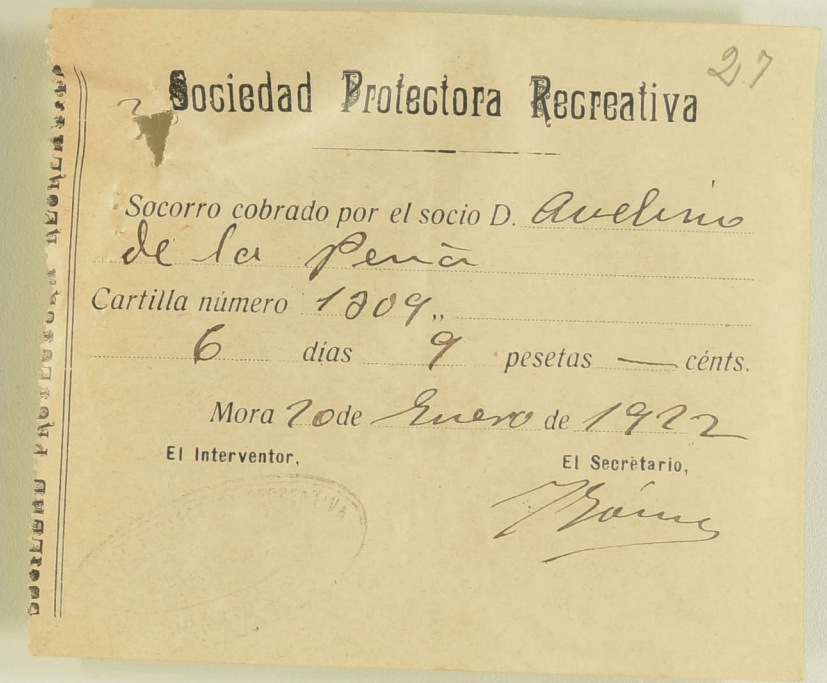 27
Sociedad Protectora Recreativa
Socorro cobrado por el socio D. Avelino
de la Peña
Cartilla número 1309 „
6 días 9 pesetas — cénts.
Mora 20 de Enero de 1922
El Interventor,
El Secretario,
RECREATIVA